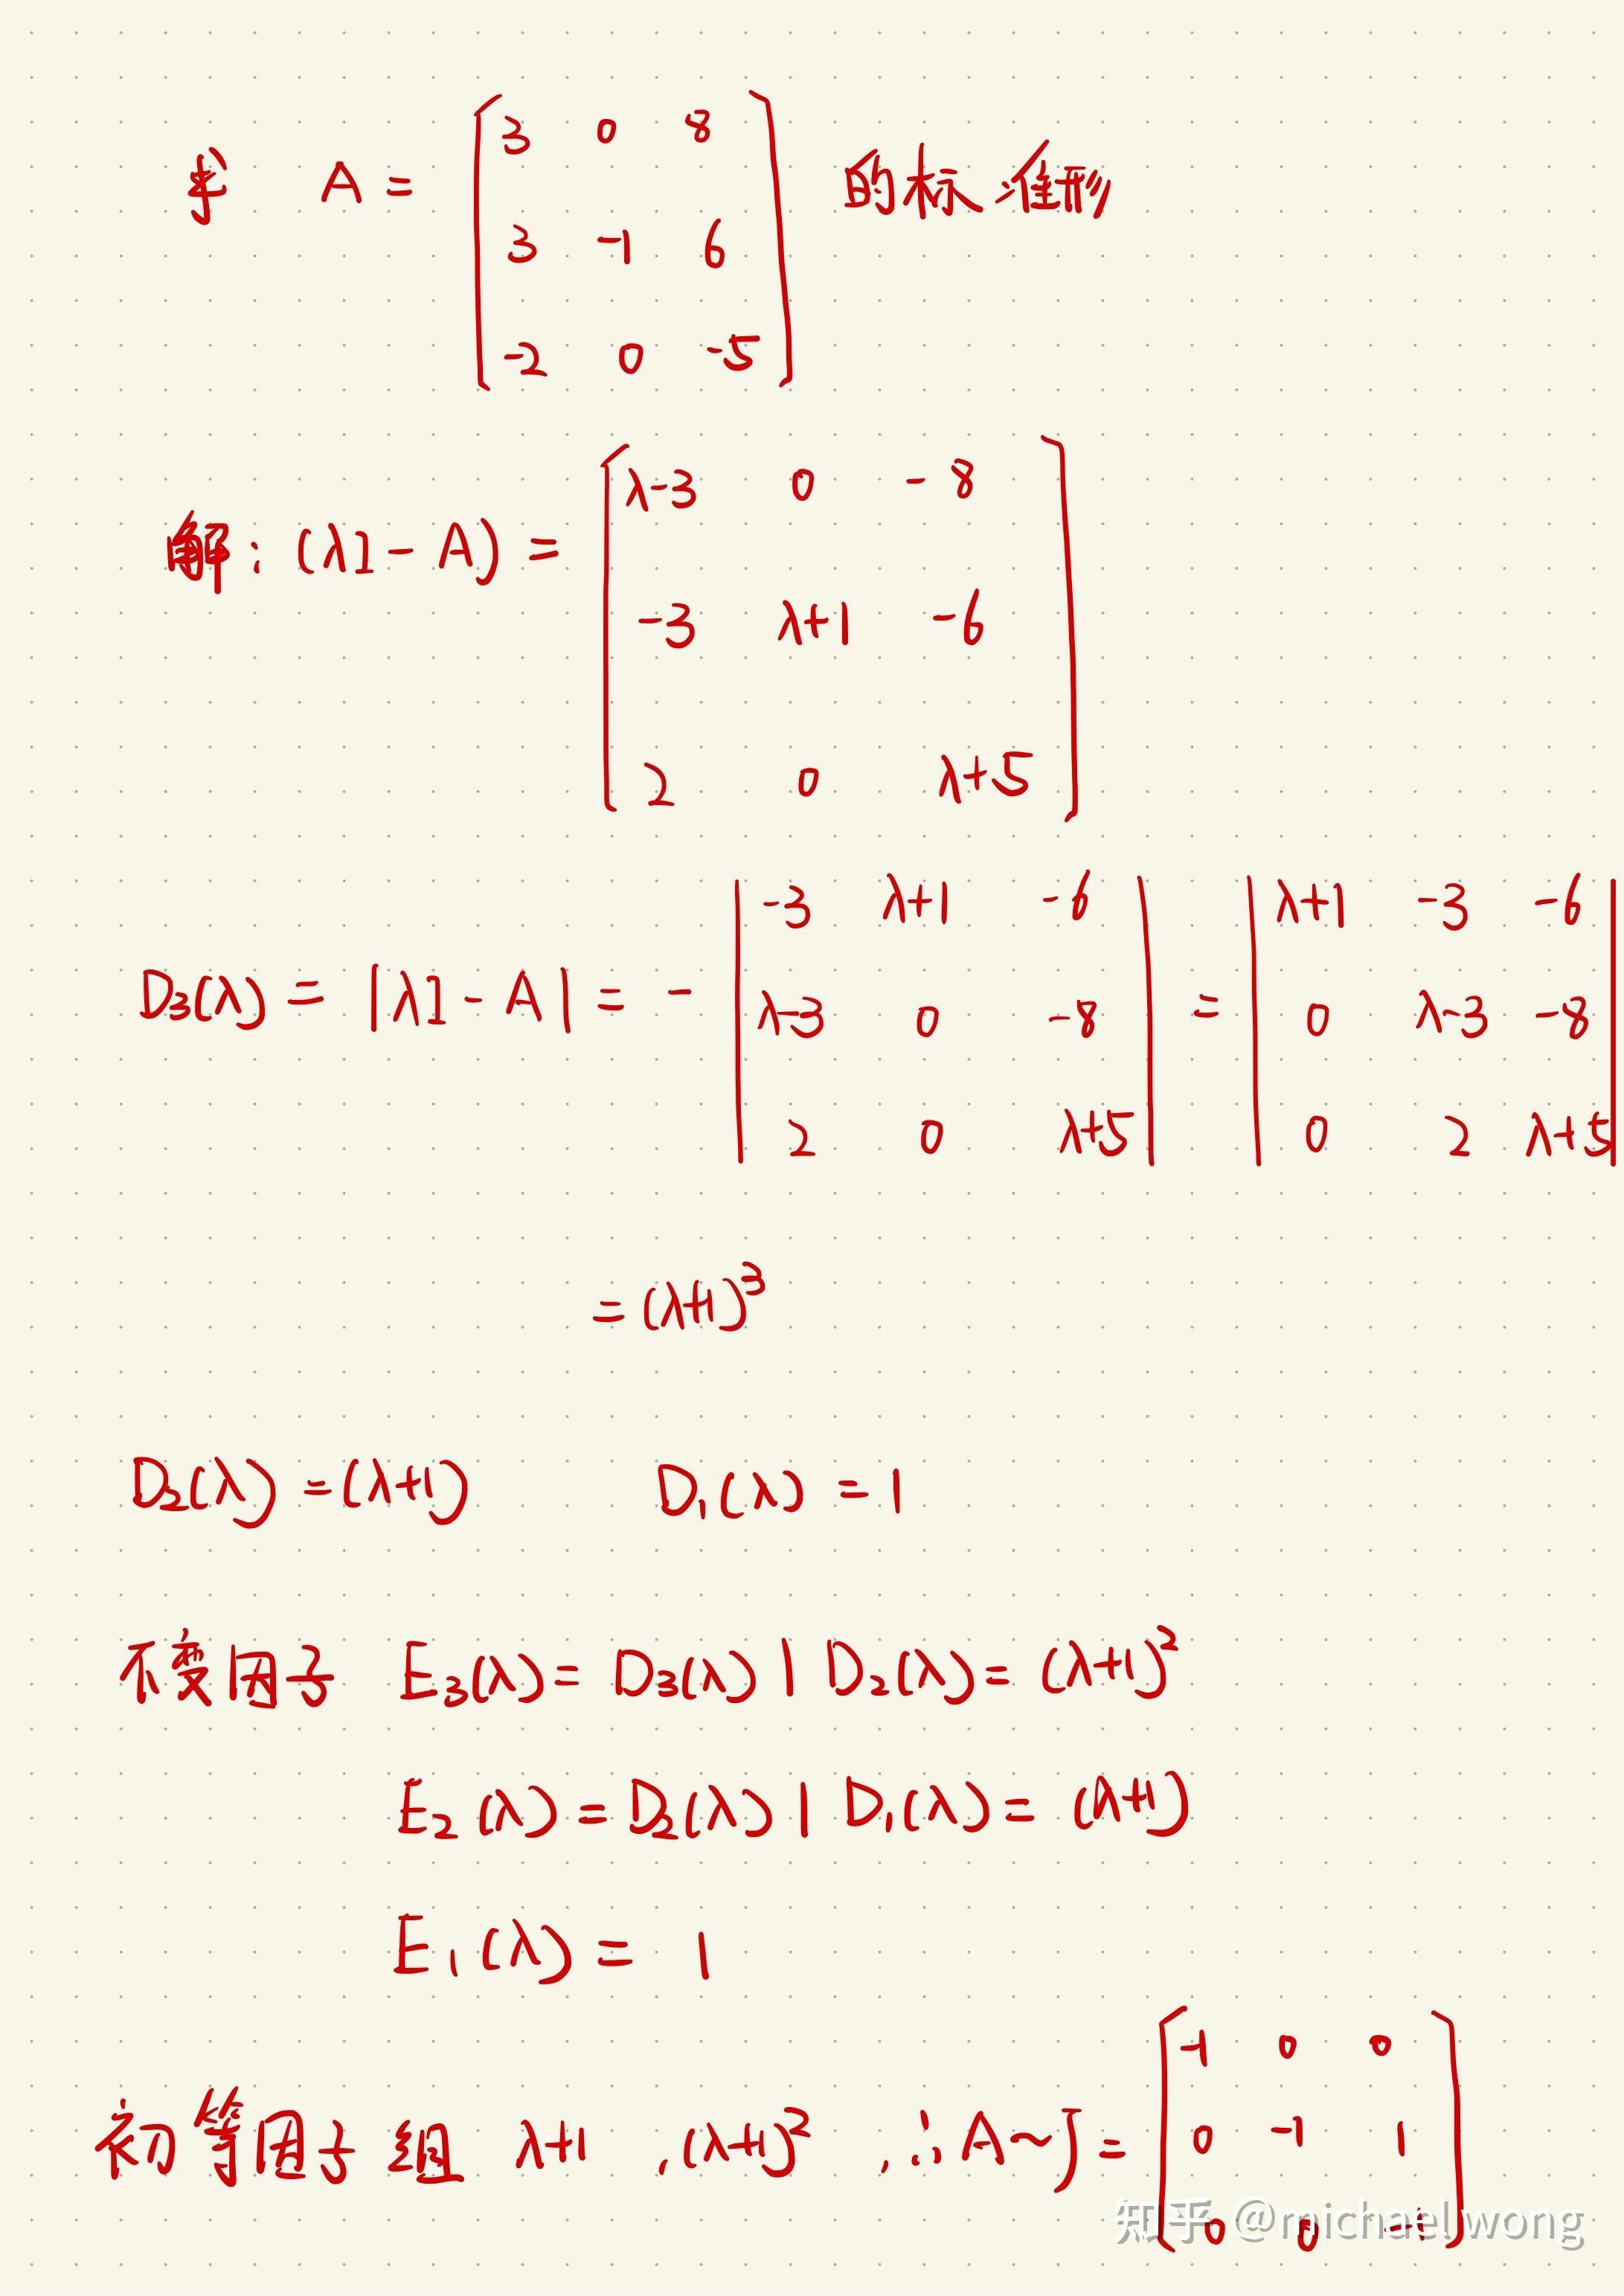 求 A = [3 0 8
3 -1 6
-2 0 -5] 的标准形
解: (λI - A) = [λ-3 0 -8
-3 λ+1 -6
2 0 λ+5]
D₃(λ) = |λI - A| = - |-3 λ+1 -6
λ-3 0 -8
2 0 λ+5| = |λ+1 -3 -6
0 λ-3 -8
0 2 λ+5|
= (λ+1)³
D₂(λ) = (λ+1) D₁(λ) = 1
不变因子 E₃(λ) = D₃(λ) | D₂(λ) = (λ+1)²
E₂(λ) = D₂(λ) | D₁(λ) = (λ+1)
E₁(λ) = 1
初等因子组 λ+1 , (λ+1)² , ∴ A ~ J = [-1 0 0
0 -1 1
0 0 -1]
知乎 @michael wong